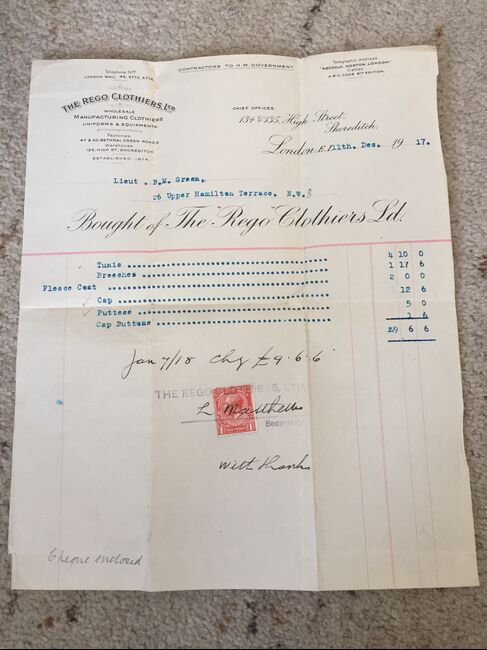 Telephone Nos
LONDON WALL 44, 4773, 4774.
CONTRACTORS TO H.M. GOVERNMENT
Telegraphic Address
LONDON."
Cables
A.B.C. CODE 5TH EDITION.
THE REGO CLOTHIERS, Ltd.
WHOLESALE
MANUFACTURING CLOTHIERS
UNIFORMS & EQUIPMENTS.
Factories.
47 & 50, BETHNAL GREEN ROAD, E.
Warehouse.
135, HIGH ST, SHOREDITCH.
ESTABLISHED 1874.
CHIEF OFFICES:
134 & 135, High Street,
Shoreditch,
London, E. 11th. Dec. 1917.
Lieut. B.M. Green,
26 Upper Hamilton Terrace, N.W.8
Bought of The "Rego" Clothiers Ld.
Tunic 4 10 0
Breeches 1 17 6
Fleece Coat 2 0 0
Cap 12 6
Puttees 5 0
Cap Buttons 1 6
£9 6 6
Jan 7/18 Chq £9-6-6
THE REGO CLOTHIERS, LTD.
L Matthews
Secretary
ONE PENNY
With thanks
Cheque enclosed